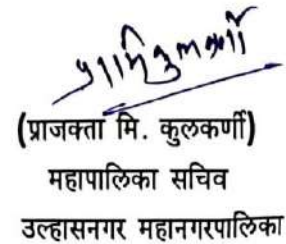 (प्राजक्ता मि. कुलकर्णी)
महापालिका सचिव
उल्हासनगर महानगरपालिका